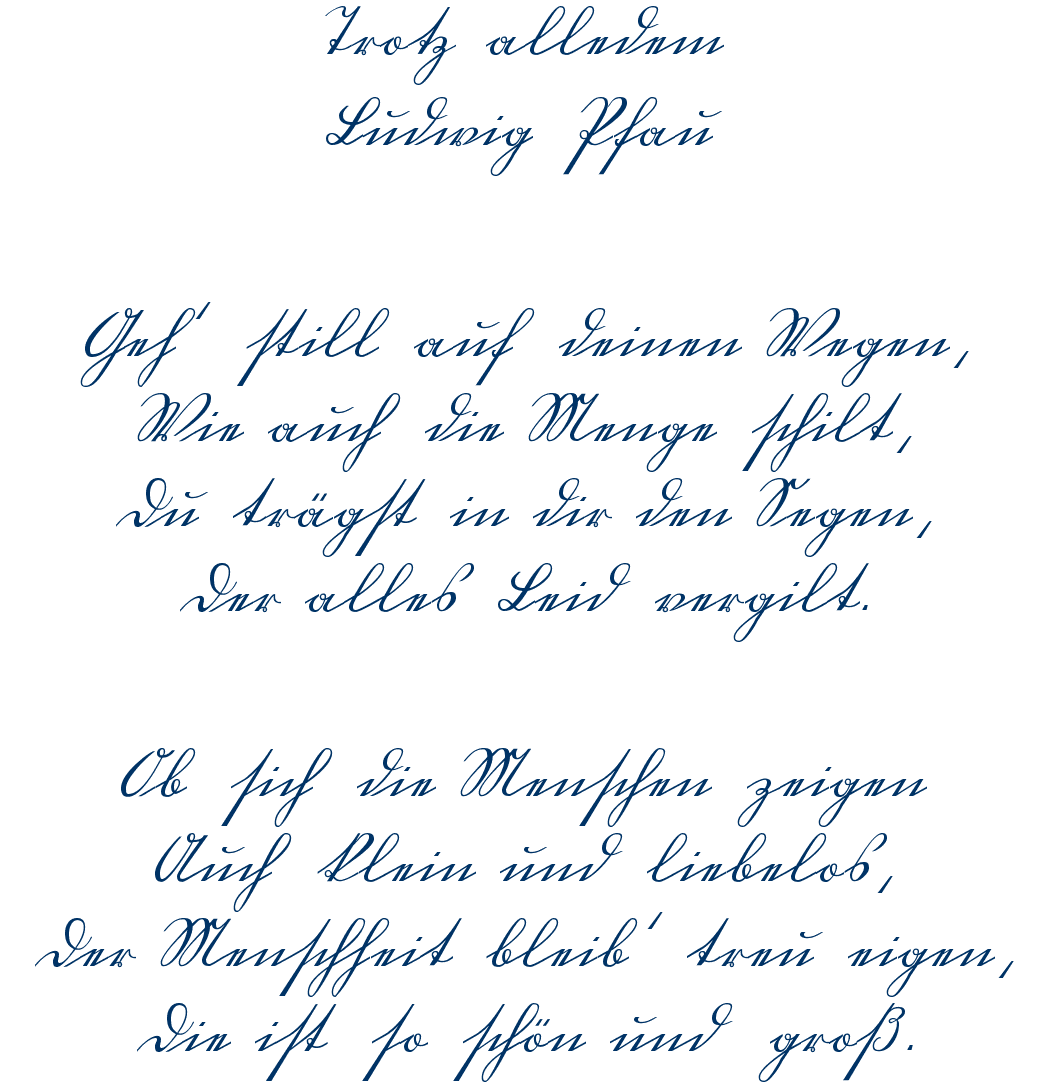 Trotz alledem
Ludwig Pfau
Geh' still auf deinen Wegen,
Wie auch die Menge schilt,
Du trägst in dir den Segen,
Der alles Leid vergilt.
Ob sich die Menschen zeigen
Auch klein und liebelos,
Der Menschheit bleib' treu eigen,
Die ist so schön und groß.